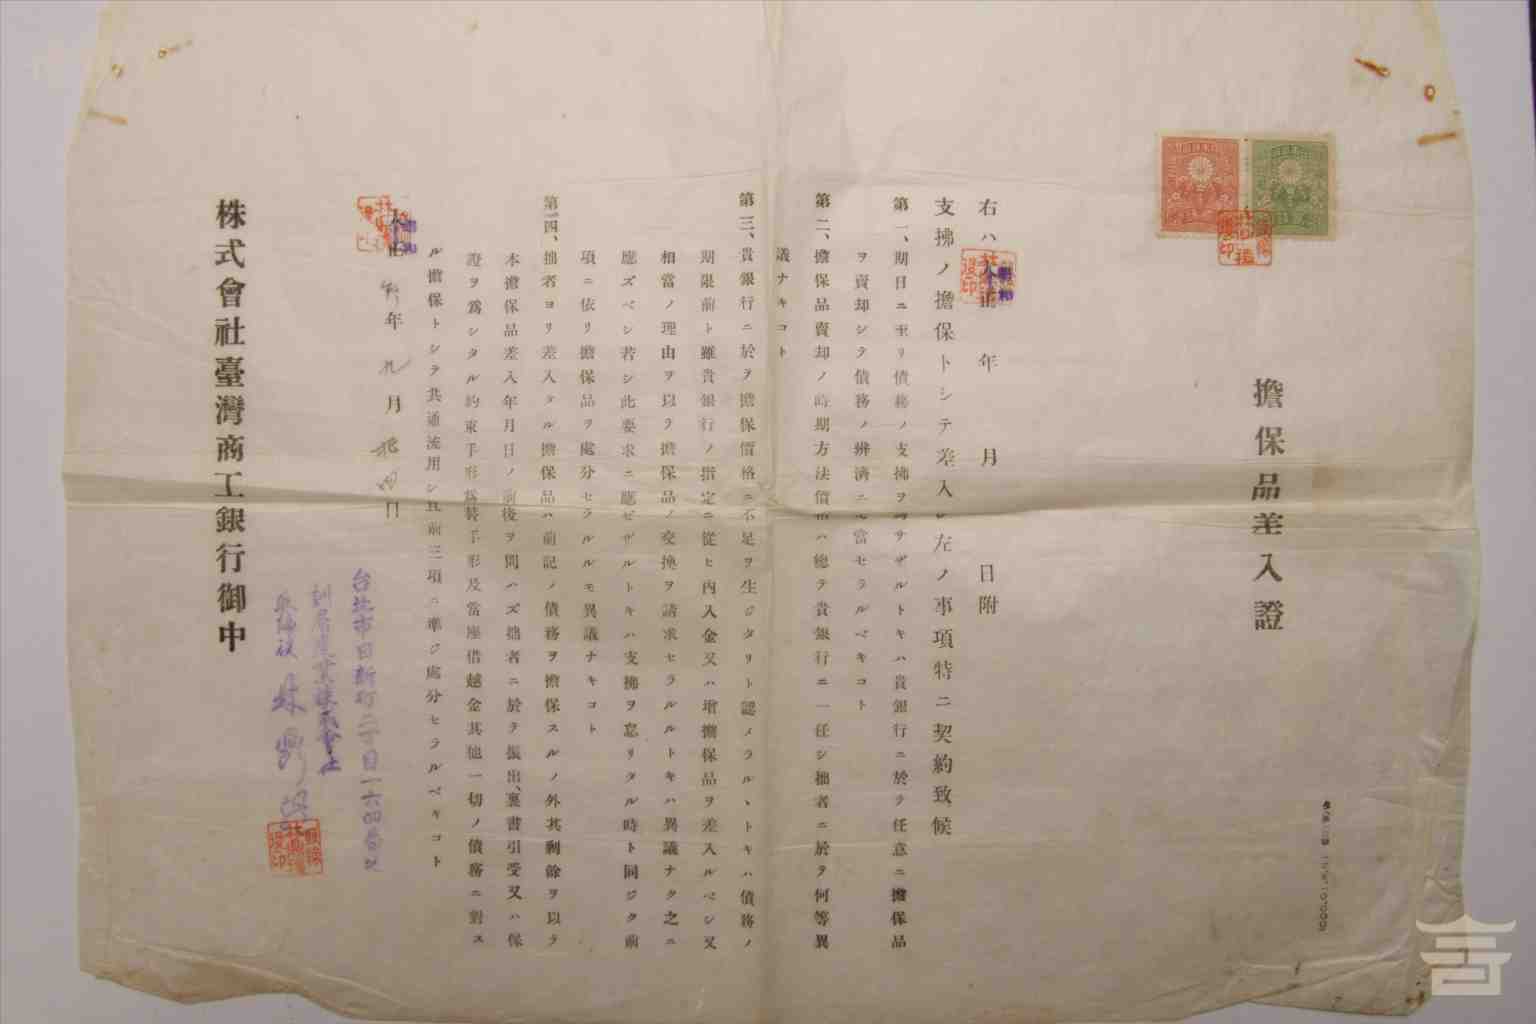 擔保品差入證
右ハ大正 年 月 日附
支拂ノ擔保トシテ差入レ左ノ事項特ニ契約致候
第一、期日ニ至リ債務ノ支拂ヲ爲サザルトキハ貴銀行ニ於テ任意ニ擔保品
ヲ賣却シテ債務ノ辨濟ニ充當セラルベキコト
第二、擔保品賣却ノ時期方法價格ハ總テ貴銀行ニ一任シ拙者ニ於テ何等異
議ナキコト
第三、貴銀行ニ於テ擔保價格ニ不足ヲ生ジタリト認メラルヽトキハ債務ノ
期限前ト雖貴銀行ノ指定ニ從ヒ內入金又ハ增擔保品ヲ差入ルベシ又
相當ノ理由ヲ以テ擔保品ノ交換ヲ請求セラルルトキハ異議ナク之ニ
應ズベシ若シ此要求ニ應ゼザルトキハ支拂ヲ怠リタル時ト同ジク前
項ニ依リ擔保品ヲ處分セラルルモ異議ナキコト
第四、拙者ヨリ差入タル擔保品ハ前記ノ債務ヲ擔保スルノ外其剩餘ヲ以テ
本擔保品差入年月日ノ前後ヲ問ハズ拙者ニ於テ振出、裏書引受又ハ保
證ヲ爲シタル約束手形爲替手形及當座借越金其他一切ノ債務ニ對ス
ル擔保トシテ共通流用シ且前三項ニ準ジ處分セラルベキコト
年 九月 日
台北市日新町二丁目一六四番地
株式會社
取締役 林
株式會社臺灣商工銀行御中